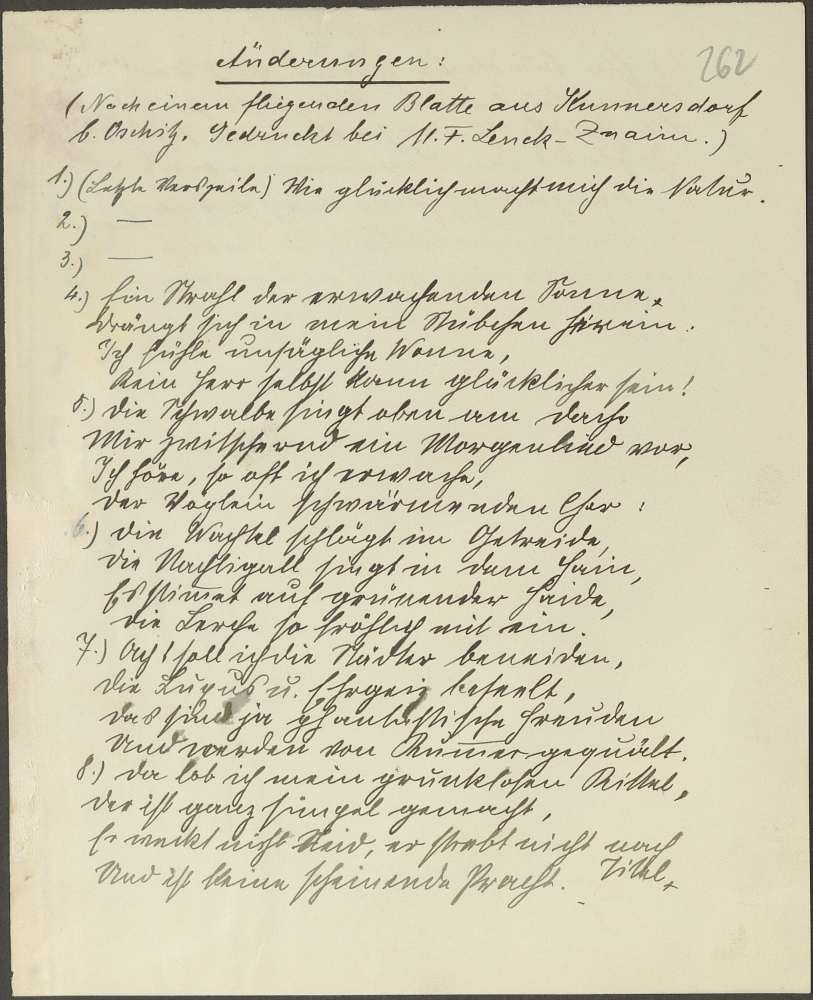 Änderungen:
262
(Nach einem fliegenden Blatte aus Kunnersdorf
b. Oschitz. Gedruckt bei M. F. Lenck - Znaim.)
1.) (Letzte Verszeile) Wie glücklich macht mich die Natur.
2.) —
3.) —
4.) Ein Strahl der erwachenden Sonne,
Drängt sich in mein Stübchen herein.
Ich fühle unsägliche Wonne,
Kein Herr selbst kann glücklicher sein!
5.) Die Schwalbe singt oben am Dache
Mir zwitschernd ein Morgenlied vor,
Ich höre, so oft ich erwache,
Der Vöglein schwärmenden Chor:
6.) Die Wachtel schlägt im Getreide,
Die Nachtigall singt in dem Hain,
Es stimmet auf grünender Haide,
Die Lerche so fröhlich mit ein.
7.) Ach! soll ich die Städter beneiden,
Die Luxus u. Ehrgeiz beseelt,
Das sind ja phantastische Freuden
Und werden von Kummer gequält.
8.) Da lob ich mein prunklosen Kittel,
Der ist ganz simpel gemacht,
Er weckt nicht Neid, er strebt nicht nach
Titel,
Und ist keine scheinende Pracht.